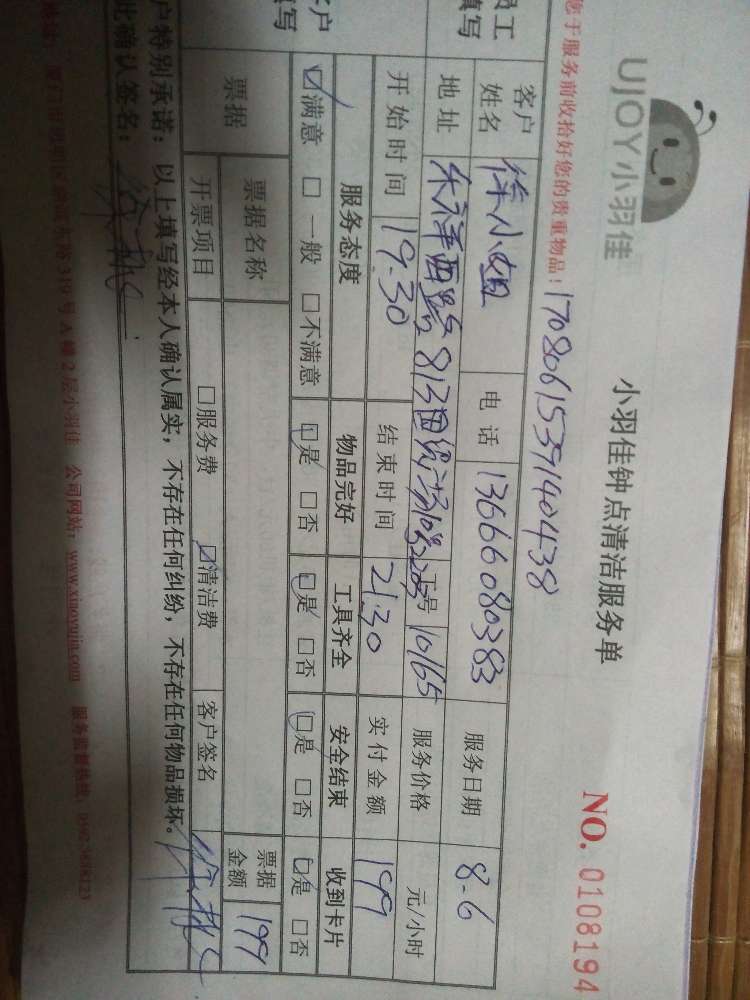 UJOY小羽佳
小羽佳钟点清洁服务单
NO. 0108194
您于服务前收拾好您的贵重物品!
17080615391940438
员工
填写
客户
姓名
徐小姐
电话
13666080383
服务日期
8-6
地址
东祥西路813
工号
10165
服务价格
元/小时
开始时间
19-30
结束时间
21:30
实付金额
199
客户
填写
服务态度
物品完好
工具齐全
安全结束
收到卡片
☑满意 □一般 □不满意
☑是 □否
☑是 □否
☑是 □否
☑是 □否
票据
票据名称
票据
金额
199
开票项目
□服务费 ☑清洁费
客户签名
户特别承诺:以上填写经本人确认属实,不存在任何纠纷,不存在任何物品损坏。
此确认签名:
319号A幢2层小羽佳 公司网站:www.xiaoyujia.com 服务监督热线: